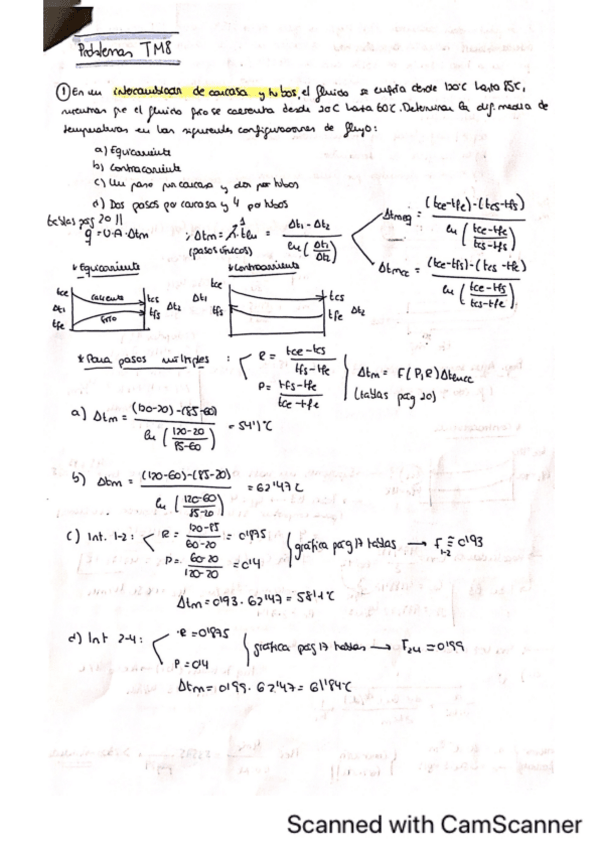 Problemas TM8
① En un intercambiador de carcasa y tubos, el fluido se enfría desde 120°C hasta 85°C,
mientras que el fluido frío se calienta desde 20°C hasta 60°C. Determinar la dif. media de
temperaturas en las siguientes configuraciones de flujo:
a) Equicorriente
b) Contracorriente
c) Un paso por carcasa y dos por tubos
d) Dos pasos por carcasa y 4 por tubos
tablas pag 20
q = U·A·Δtm ; Δtm = = (Δt1 - Δt2) / ln(Δt1/Δt2)
(pasos únicos)
Δtmeq = ((tce-tfe)-(tcs-tfs)) / ln((tce-tfe)/(tcs-tfs))
Δtmcc = ((tce-tfs)-(tcs-tfe)) / ln((tce-tfs)/(tcs-tfe))
* Equicorriente
* Contracorriente
tce caliente tcs
Δt1 Δt2
tfe frío tfs
tce tcs
Δt1 Δt2
tfs tfe
* Para pasos múltiples : R = (tce-tcs)/(tfs-tfe)
P = (tfs-tfe)/(tce-tfe)
Δtm = F(P,R)Δtmcc
(tablas pág 20)
a) Δtm = ((120-20)-(85-60)) / ln((120-20)/(85-60)) = 54'1°C
b) Δtm = ((120-60)-(85-20)) / ln((120-60)/(85-20)) = 62'47°C
c) Int. 1-2: R = (120-85)/(60-20) = 0'875
P = (60-20)/(120-20) = 0'4
gráfica pág 17 tablas → F1-2 = 0'93
Δtm = 0'93 · 62'47 = 58'1°C
d) Int 2-4: R = 0'875
P = 0'4
gráfica pag 17 tablas → F24 = 0'99
Δtm = 0'99 · 62'47 = 61'84°C
Scanned with CamScanner